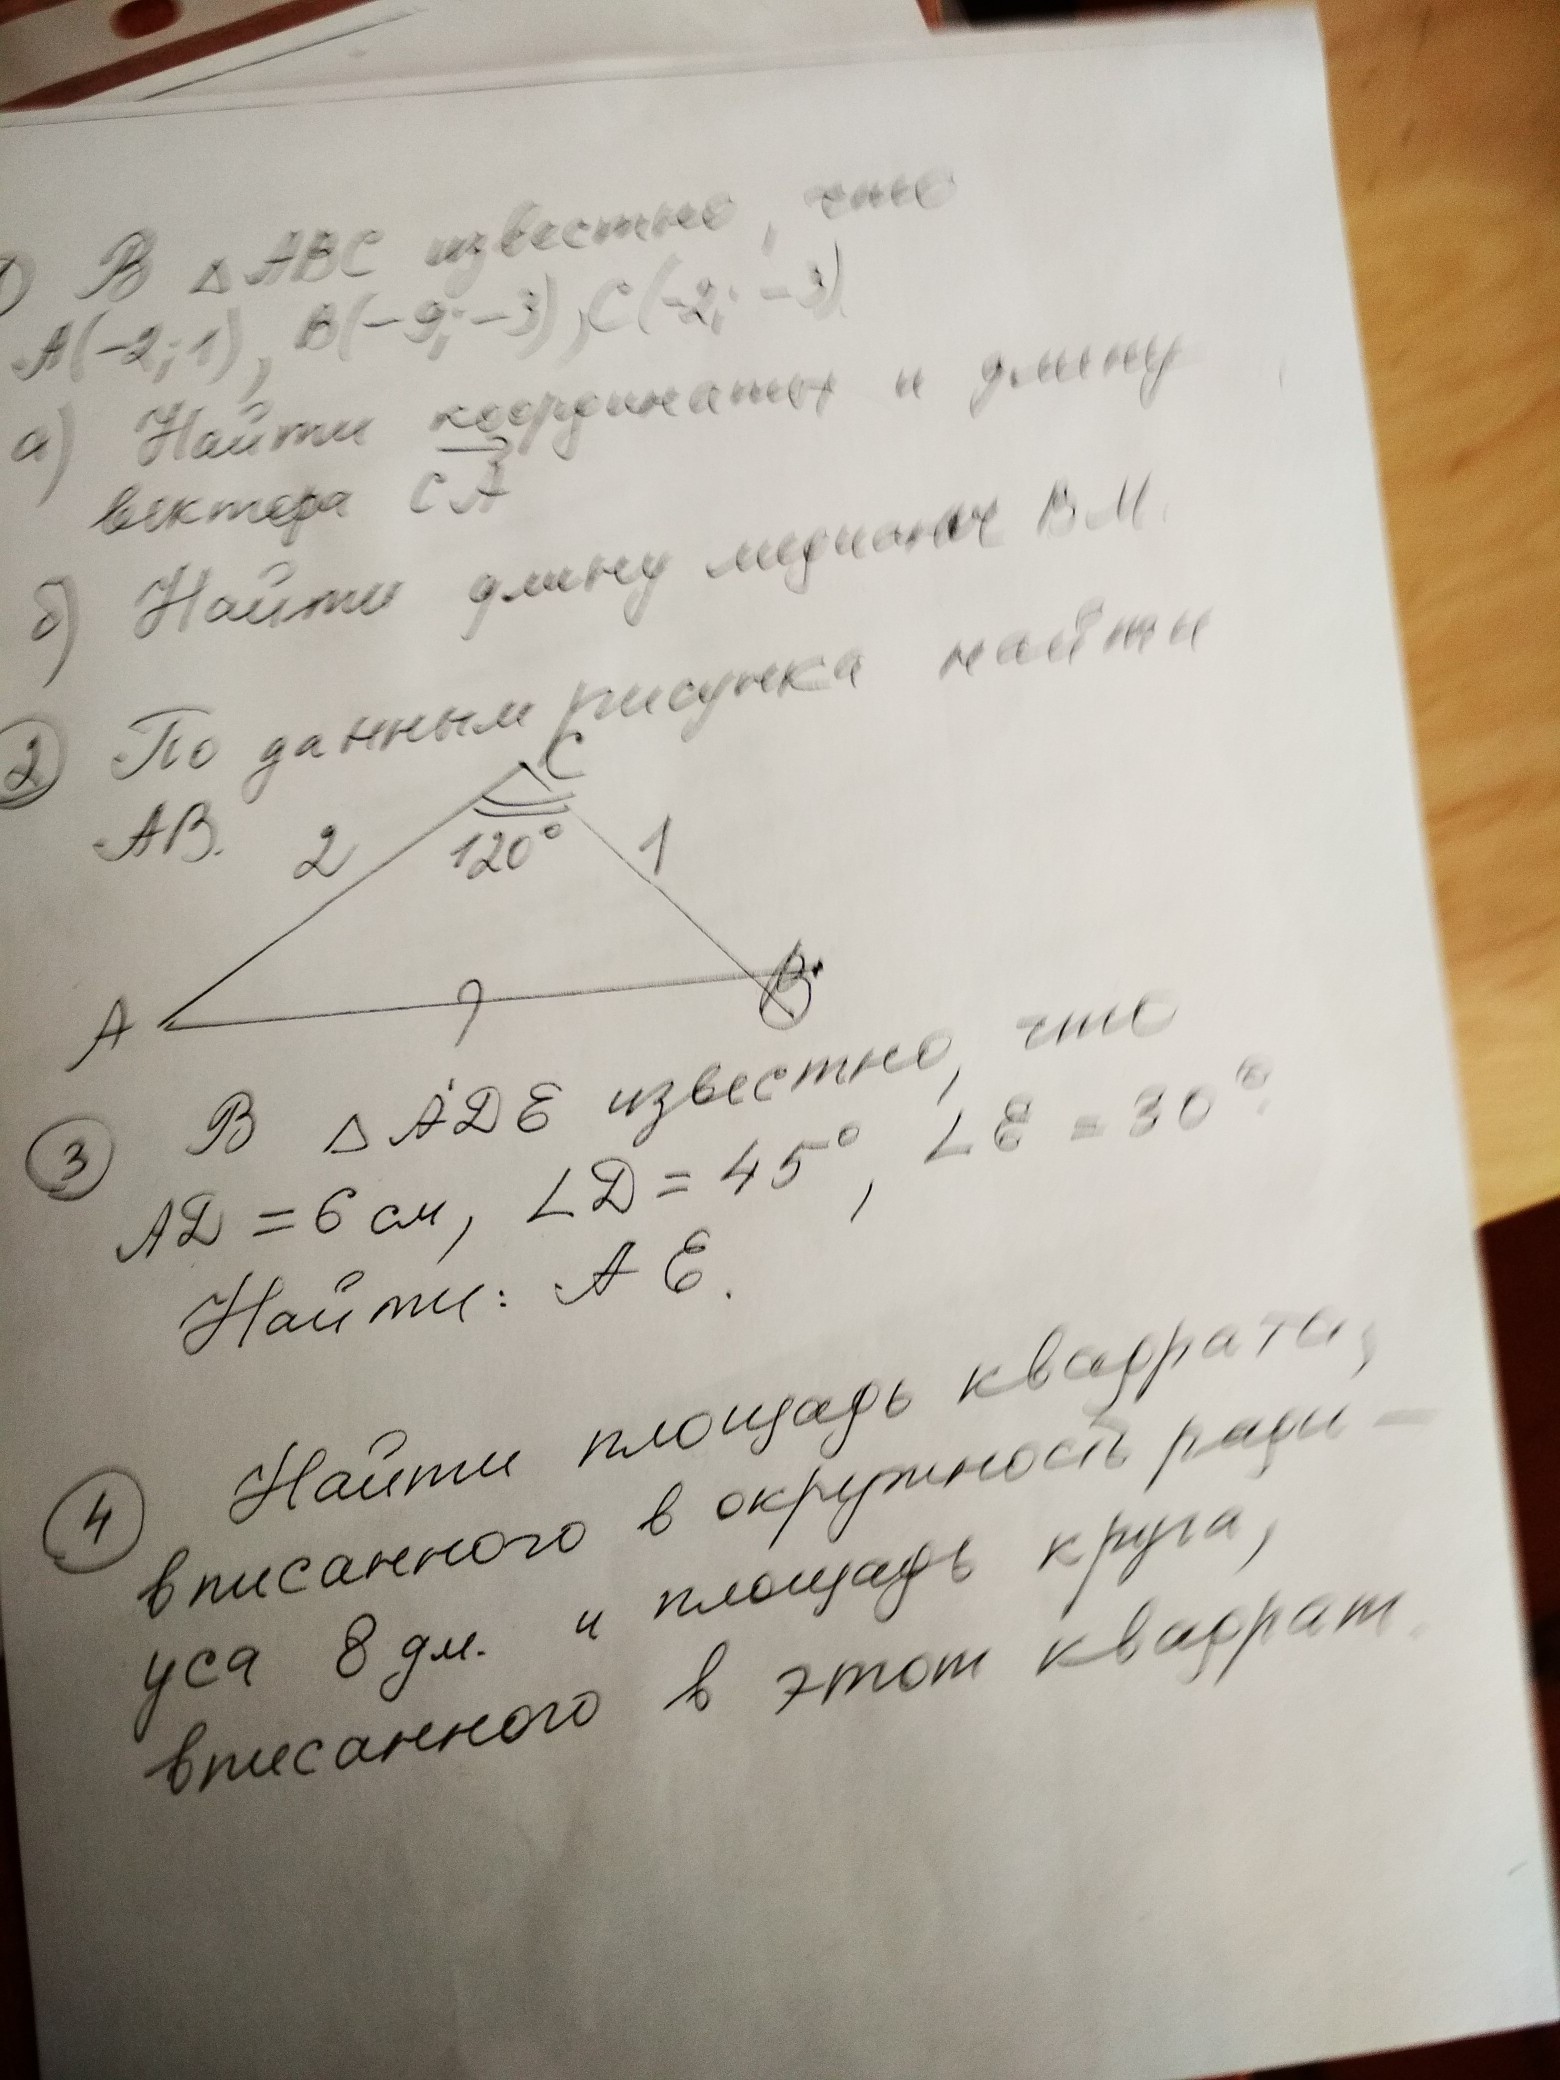 1) В △ABC известно, что
A(-2; 1), B(-9; -3), C(-2; -3)
а) Найти координаты и длину
вектора CA
б) Найти длину медианы BM.
2 По данным рисунка найти
AB.
C
2
120°
1
A
?
B
3 В △ADE известно, что
AD = 6 см, ∠D = 45°, ∠E = 30°.
Найти: AE.
4 Найти площадь квадрата,
вписанного в окружность ради-
уса 8 дм. и площадь круга,
вписанного в этот квадрат.